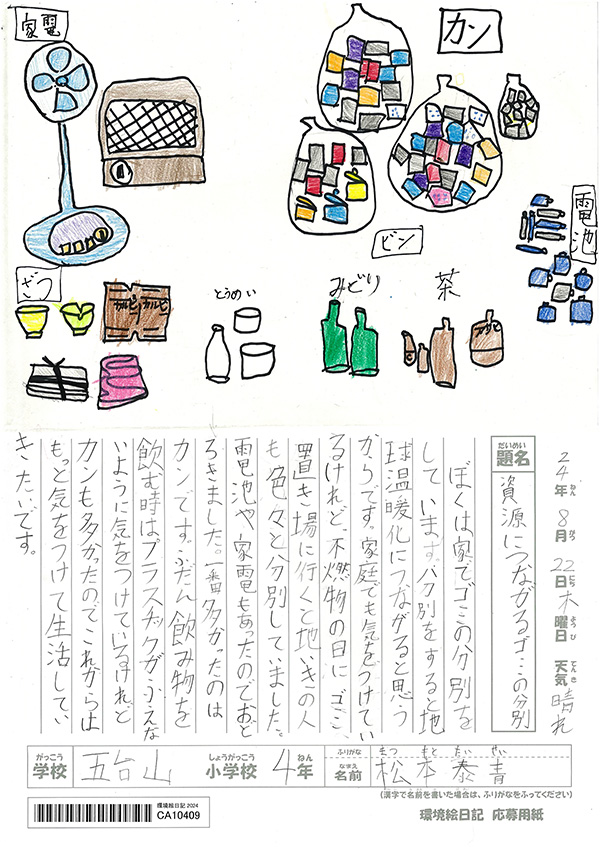 家電
カン
ビン
電池
ざつ
とうめい
みどり
茶
24年ねん8月がつ22日にち木曜日ようび 天気てんき 晴れ
だいめい
題名
資源につながるゴミの分別
ぼくは家でゴミの分別を
しています。分別をすると地
球温暖化につながると思う
からです。家庭でも気をつけてい
るけれど、不燃物の日にゴミ
置き場に行くと地いきの人
も色々と分別していました。
電池や家電もあったのでおど
ろきました。一番多かったのは
カンです。ふだん飲み物を
飲む時はプラスチックがふえな
いように気をつけているけれど
カンも多かったのでこれからは
もっと気をつけて生活してい
きたいです。
がっこう しょうがっこう ねん ふりがな まつ もと たい せい
学校 五台山 小学校 4年 なまえ 名前 松本泰青
(漢字で名前を書いた場合は、ふりがなをふってください)
環境絵日記 2024
CA10409
環境絵日記 応募用紙